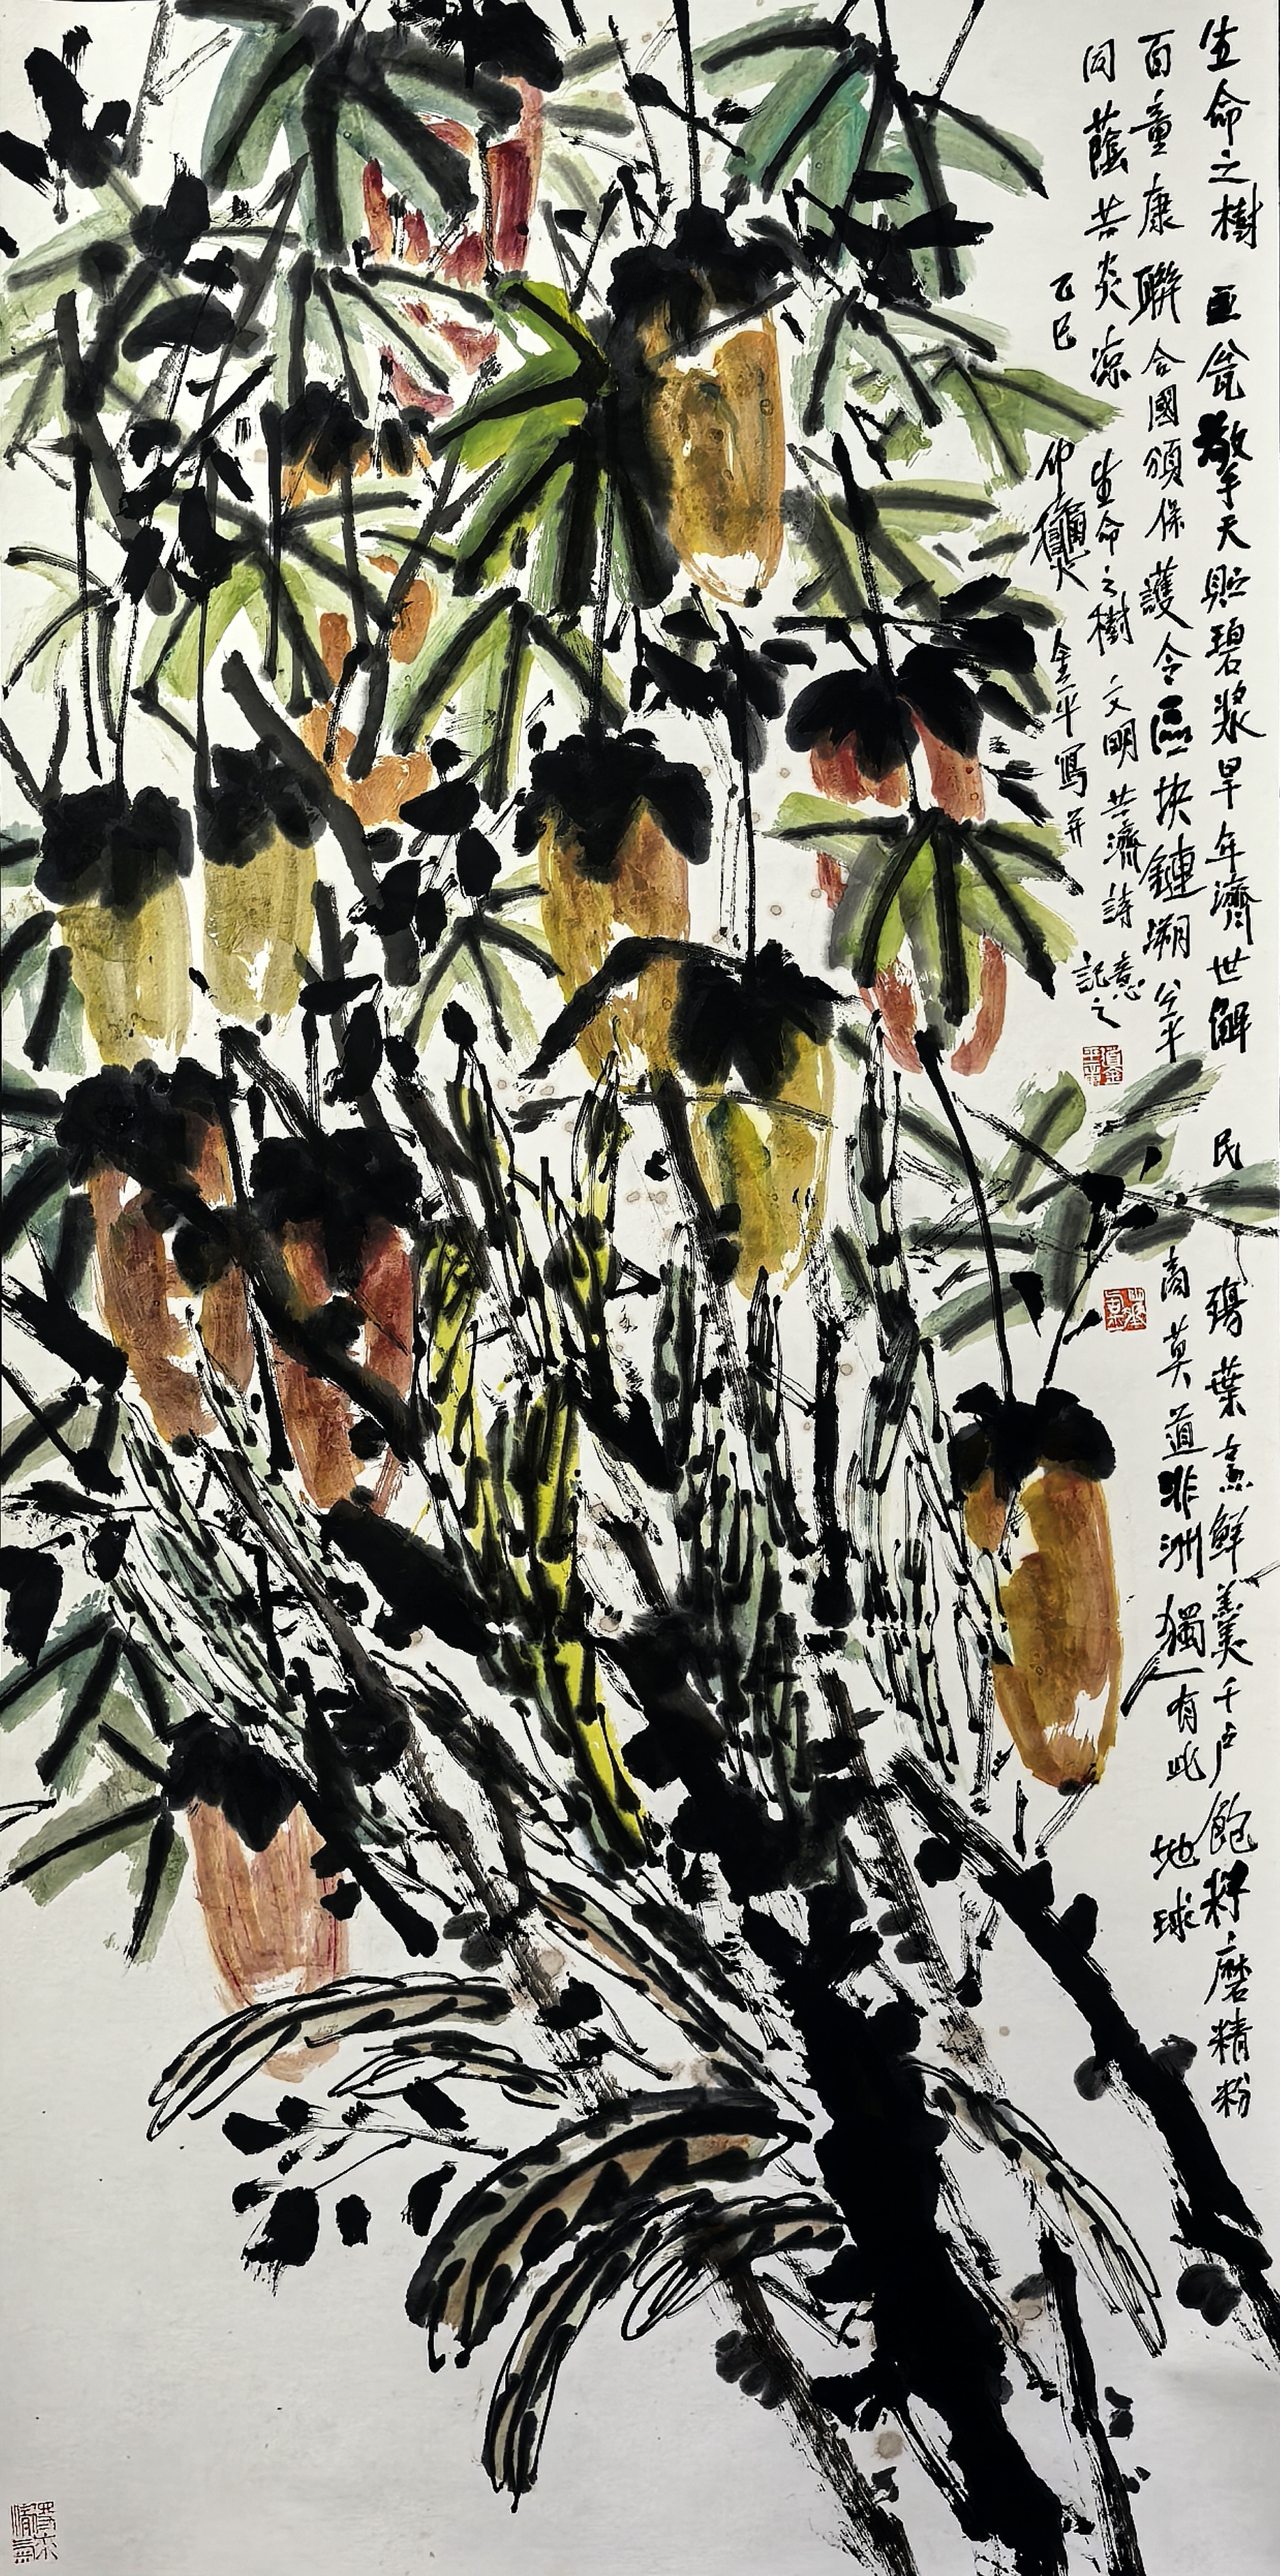 生命之樹 巨瓮擎天貯碧漿旱年濟世解民殤葉烹鮮羹千户飽籽磨精粉
百童康聯合國頒保護令區块鏈溯公平商莫道非洲獨有此地球
同蔭共炎凉 生命之樹文明共濟詩意
乙巳仲 金平寫并記之